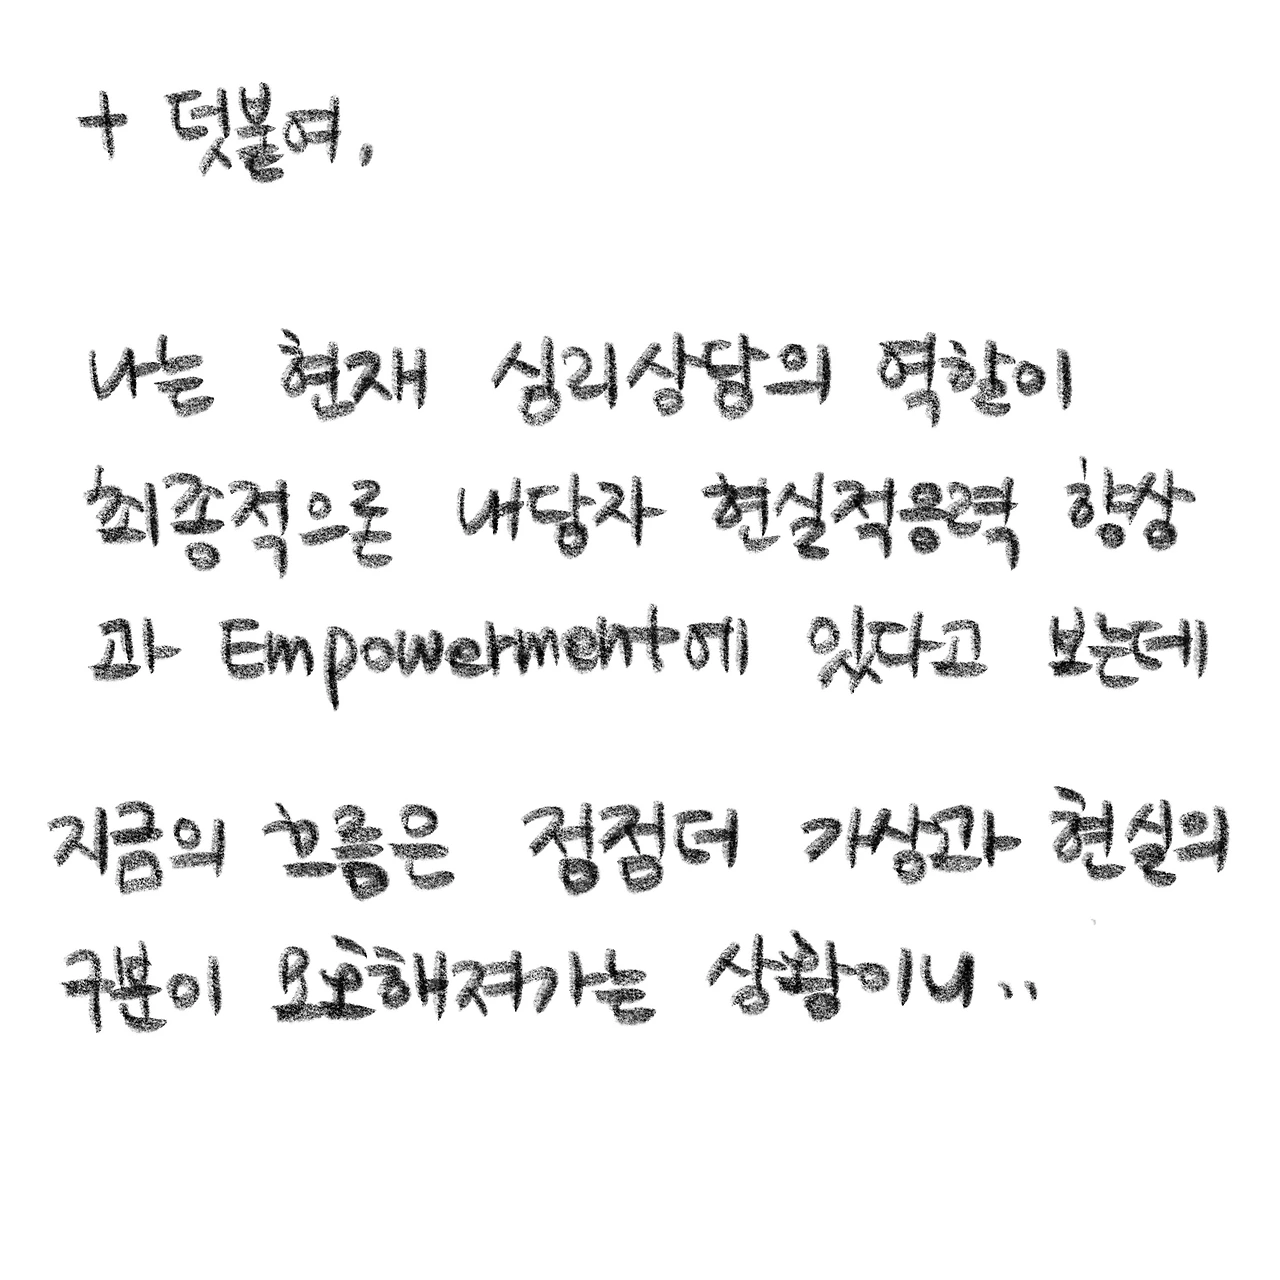 + 덧붙여,
나는 현재 심리상담의 역할이
최종적으론 내담자 현실적응력 향상
과 Empowerment에 있다고 보는데
지금의 흐름은 점점더 가상과 현실의
구분이 모호해져가는 상황이니..